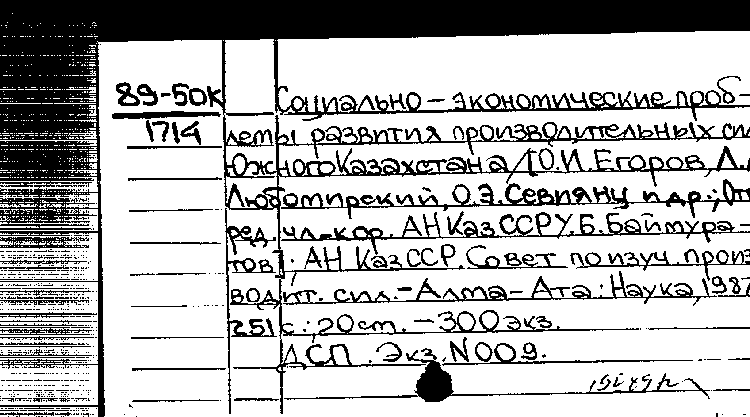 89-50К Социально-экономические проб-
1714 лемы развития производительных сил
Южного Казахстана /[Ю.И.Егоров, Л.
Любомирский, О.Э.Севпянц и др.; От
ред. чл.-кор. АН КазССР У.Б.Баймура-
тов]; АН КазССР. Совет по изуч. произ
водит. сил.-Алма-Ата: Наука, 1987
251 с.; 20 см. - 300 экз.
ДСП. Экз. N 009.